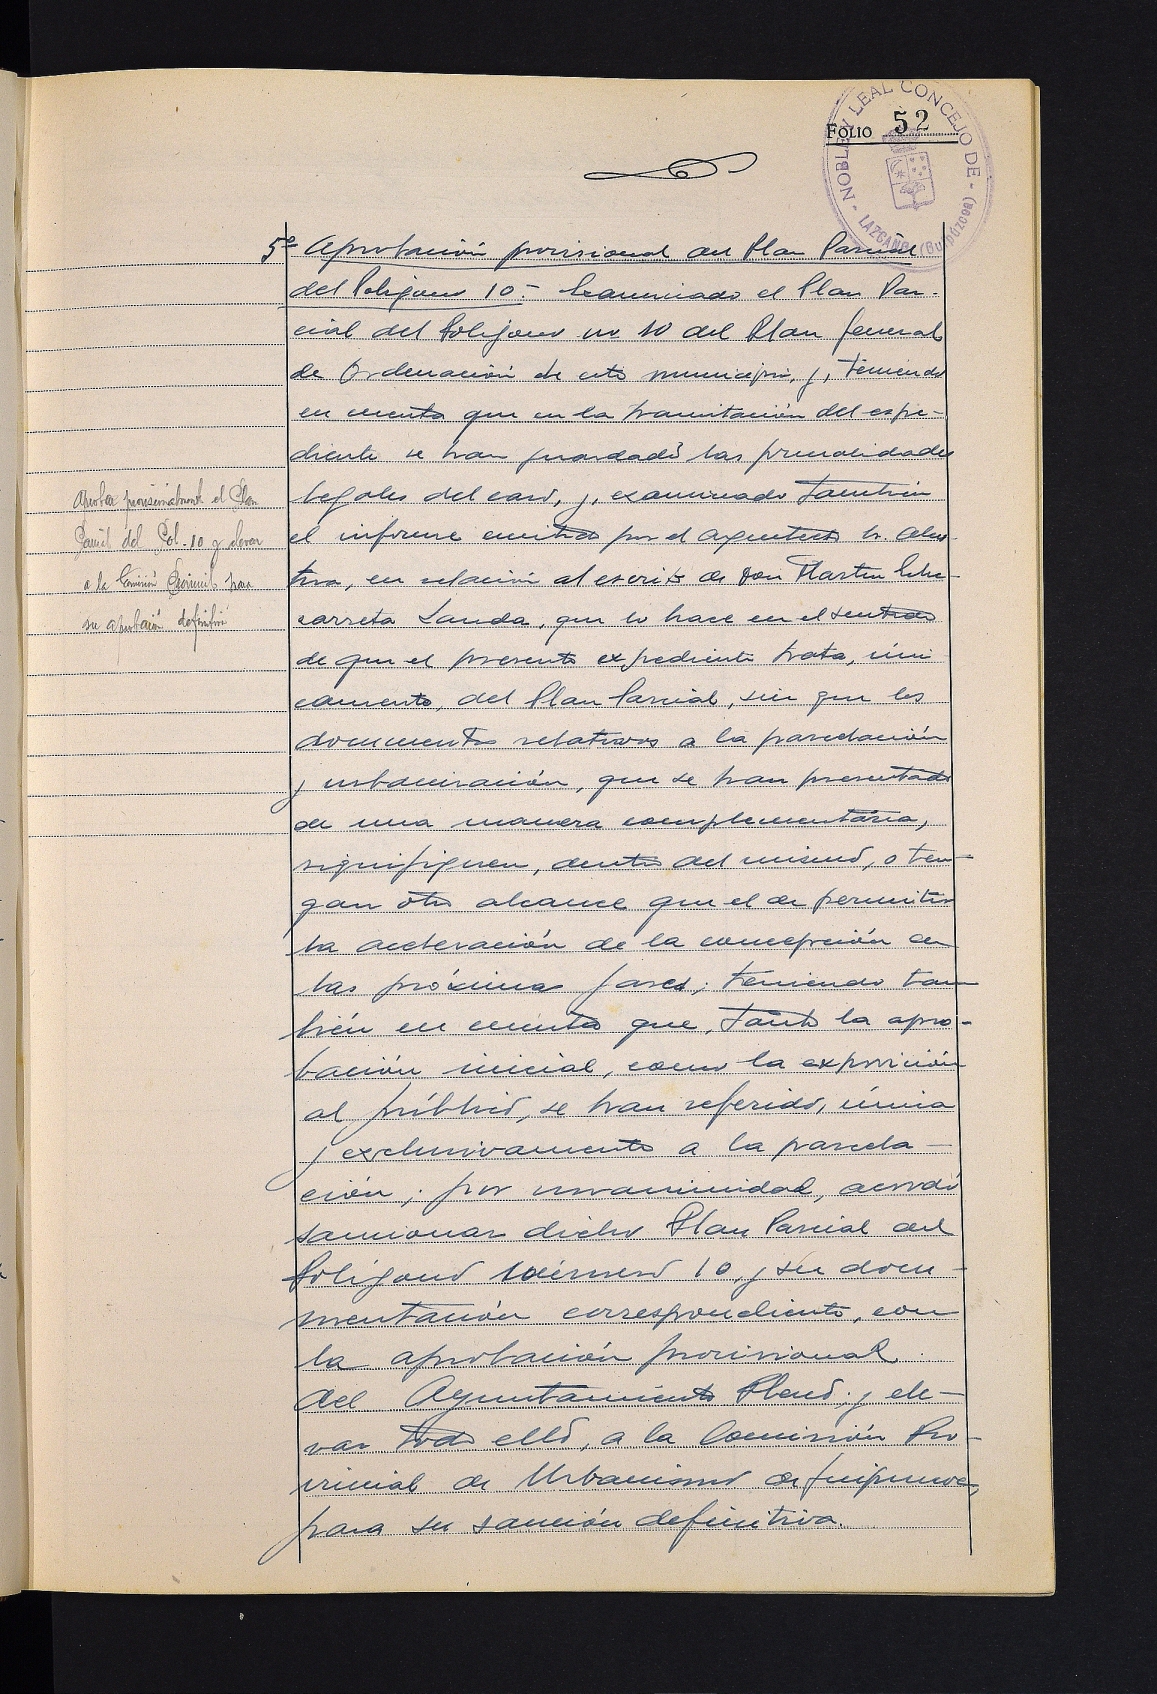 FOLIO 52
NOBLE Y LEAL CONCEJO DE - LAZCANO (Guipúzcoa) -
5º Aprobación provisional del Plan Parcial
del Poligono 10.- Examinado el Plan Par-
cial del Poligono nº 10 del Plan General
de Ordenación de este municipio, y, teniendo
en cuenta que en la tramitación del expe-
diente se han guardado las formalidades
legales del caso, y, examinado también
el informe emitido por el Arquitecto Sr.
en relación al escrito de Don Martin
Sauda, que lo hace en el sentido
de que el presente expediente trata, úni
camente, del Plan Parcial, sin que los
documentos relativos a la parcelación
y urbanización, que se han presentado
de una manera complementaria,
signifiquen, dentro del mismo, o ten-
gan otro alcance que el de permitir
la aceleración de la concepción en
las próximas fases; teniendo tam
bién en cuenta que, tanto la apro-
bación inicial, como la exposición
al público, se han referido, única
y exclusivamente a la parcela-
ción; por unanimidad, acordó
sancionar dicho Plan Parcial del
Poligono número 10, y su docu-
mentación correspondiente, con
la aprobación provisional
del Ayuntamiento Pleno; y ele-
var todo ello, a la Comisión Pro-
vincial de Urbanismo de Guipuzcoa,
para su sanción definitiva.
Aprobar provisionalmente el Plan
Parcial del Pol. 10 y elevar
a la Comisión Provincial para
su aprobación definitiva